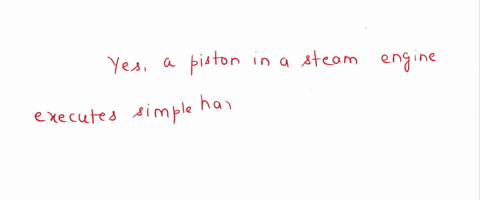 Yes, a piston in a steam engine
executes simple har